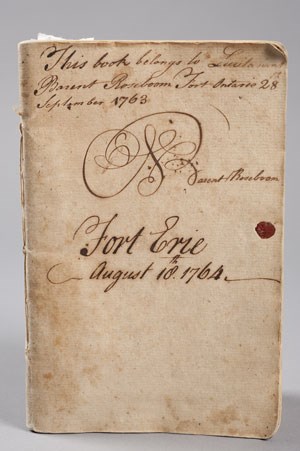 This book belongs to Lieutenant
Barent Roseboom Fort Ontario 28th
September 1763
Barent Roseboom
Fort Erie
August 18th. 1764.